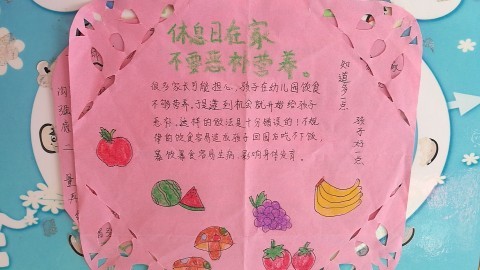 休息日在家
不要恶补营养。
很多家长可能担心,孩子在幼儿园饮食
不够营养。于是逢到机会就开始给孩子
恶补。这样的做法是十分错误的!不规
律的饮食容易造成孩子回园后吃不下饭,
暴饮暴食容易生病,影响身体发育。
知道多一点
孩子好一点